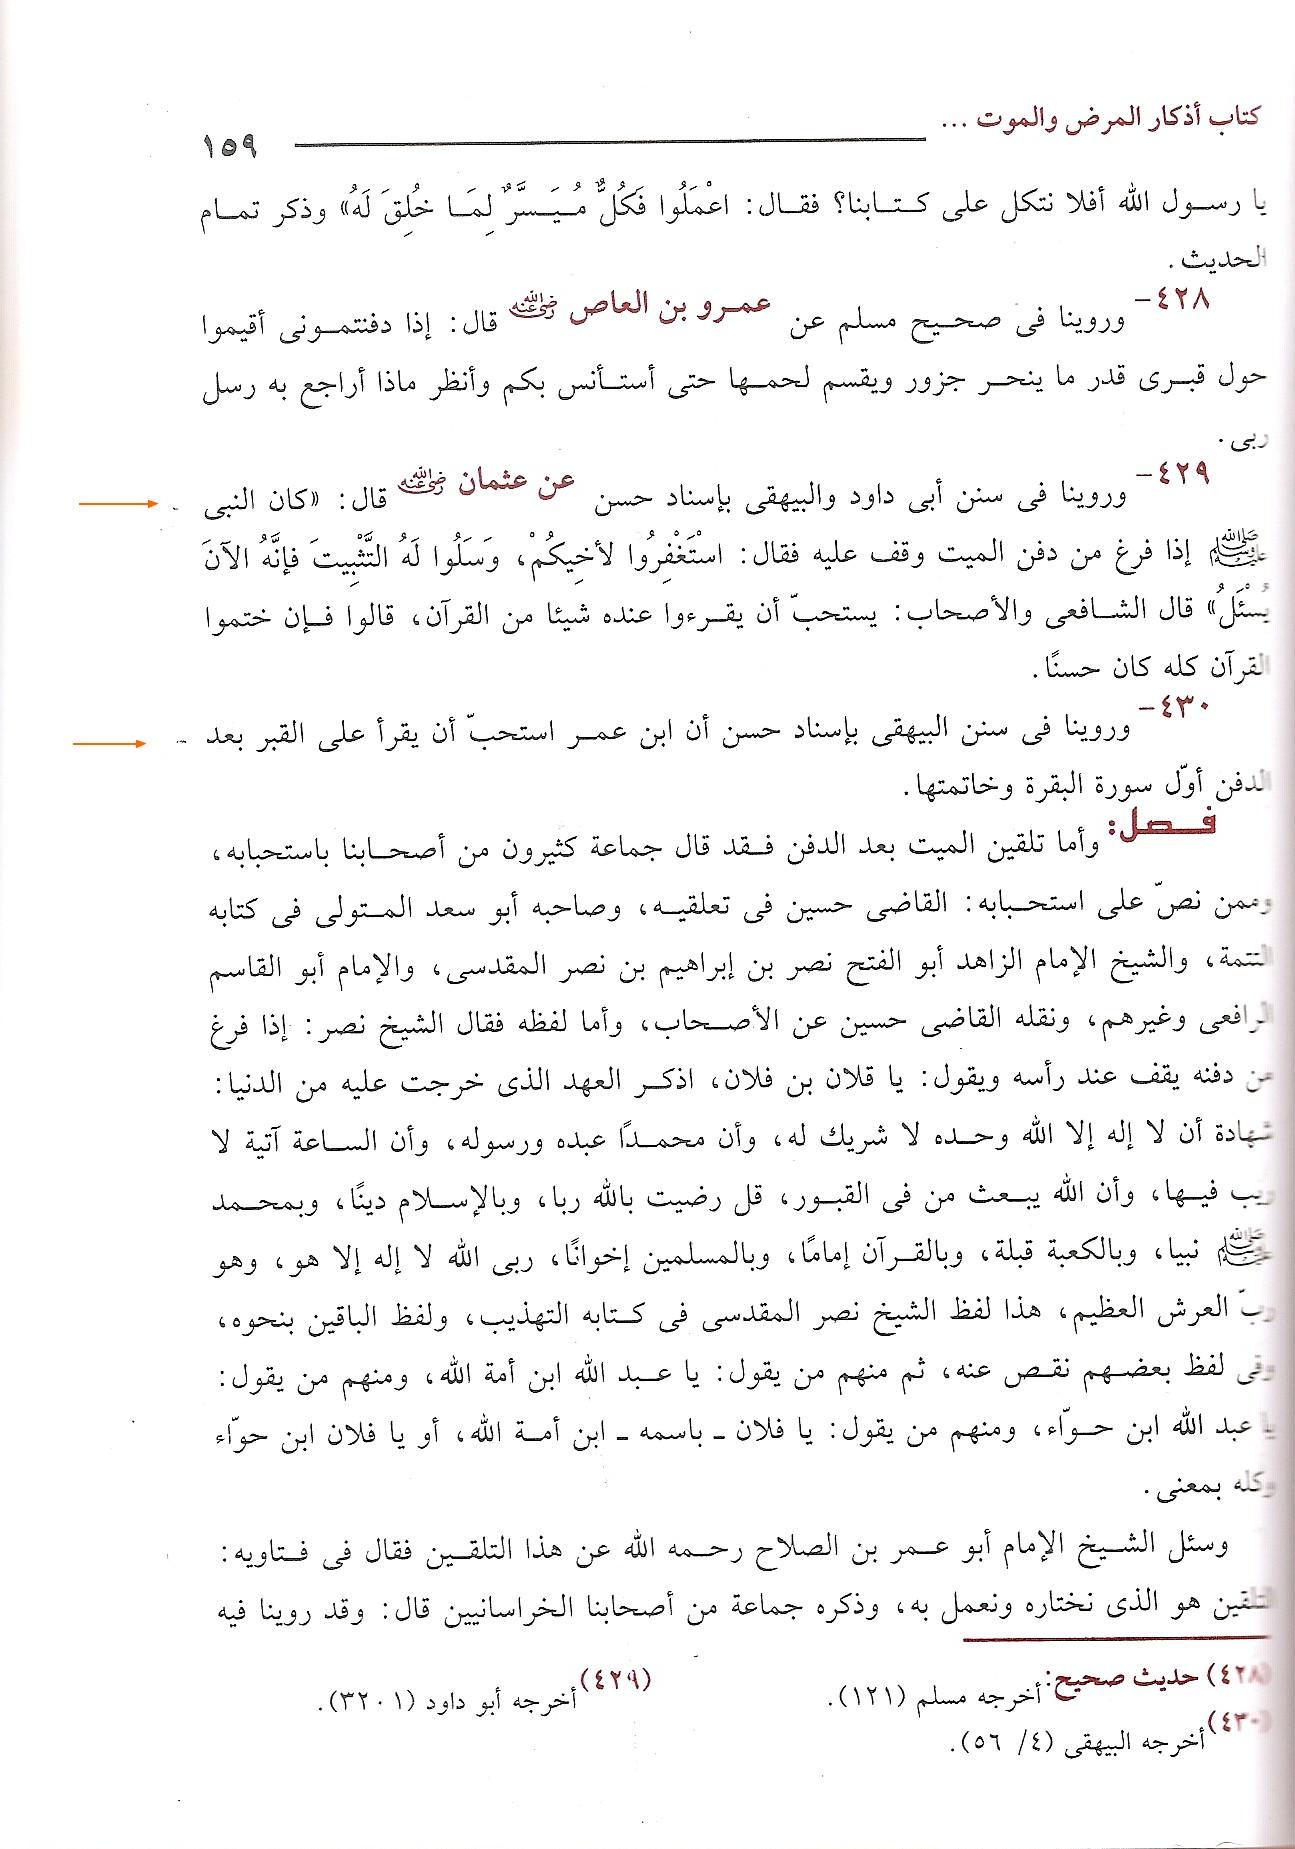 كتاب أذكار المرض والموت ...
١٥٩
يا رسول الله أفلا نتكل على كتابنا؟ فقال: اعْمَلُوا فَكُلٌّ مُيَسَّرٌ لِمَا خُلِقَ لَهُ» وذكر تمام
الحديث.
٤٢٨- وروينا فى صحيح مسلم عن عمرو بن العاص رضي الله عنه قال: إذا دفنتمونى أقيموا
حول قبرى قدر ما ينحر جزور ويقسم لحمها حتى أستأنس بكم وأنظر ماذا أراجع به رسل
ربى.
٤٢٩- وروينا فى سنن أبى داود والبيهقى بإسناد حسن عن عثمان رضي الله عنه قال: «كان النبى
صلى الله عليه وسلم إذا فرغ من دفن الميت وقف عليه فقال: اسْتَغْفِرُوا لأخِيكُمْ، وَسَلُوا لَهُ التَّثْبِيتَ فإنَّهُ الآنَ
يُسْئَلُ» قال الشافعى والأصحاب: يستحبّ أن يقرءوا عنده شيئا من القرآن، قالوا فإن ختموا
القرآن كله كان حسنًا.
٤٣٠- وروينا فى سنن البيهقى بإسناد حسن أن ابن عمر استحبّ أن يقرأ على القبر بعد
الدفن أوّل سورة البقرة وخاتمتها.
فصل: وأما تلقين الميت بعد الدفن فقد قال جماعة كثيرون من أصحابنا باستحبابه،
وممن نصّ على استحبابه: القاضى حسين فى تعلقيه، وصاحبه أبو سعد المتولى فى كتابه
التتمة، والشيخ الإمام الزاهد أبو الفتح نصر بن إبراهيم بن نصر المقدسى، والإمام أبو القاسم
الرافعى وغيرهم، ونقله القاضى حسين عن الأصحاب، وأما لفظه فقال الشيخ نصر: إذا فرغ
من دفنه يقف عند رأسه ويقول: يا قلان بن فلان، اذكر العهد الذى خرجت عليه من الدنيا:
شهادة أن لا إله إلا الله وحده لا شريك له، وأن محمدًا عبده ورسوله، وأن الساعة آتية لا
ريب فيها، وأن الله يبعث من فى القبور، قل رضيت بالله ربا، وبالإسلام دينًا، وبمحمد
صلى الله عليه وسلم نبيا، وبالكعبة قبلة، وبالقرآن إمامًا، وبالمسلمين إخوانًا، ربى الله لا إله إلا هو، وهو
ربّ العرش العظيم، هذا لفظ الشيخ نصر المقدسى فى كتابه التهذيب، ولفظ الباقين بنحوه،
وفى لفظ بعضهم نقص عنه، ثم منهم من يقول: يا عبد الله ابن أمة الله، ومنهم من يقول:
يا عبد الله ابن حوّاء، ومنهم من يقول: يا فلان ـ باسمه ـ ابن أمة الله، أو يا فلان ابن حوّاء
وكله بمعنى.
وسئل الشيخ الإمام أبو عمر بن الصلاح رحمه الله عن هذا التلقين فقال فى فتاويه:
التلقين هو الذى نختاره ونعمل به، وذكره جماعة من أصحابنا الخراسانيين قال: وقد روينا فيه
(٤٢٨) حديث صحيح: أخرجه مسلم (١٢١).
(٤٢٩) أخرجه أبو داود (٣٢٠١).
(٤٣٠) أخرجه البيهقى (٤/ ٥٦).